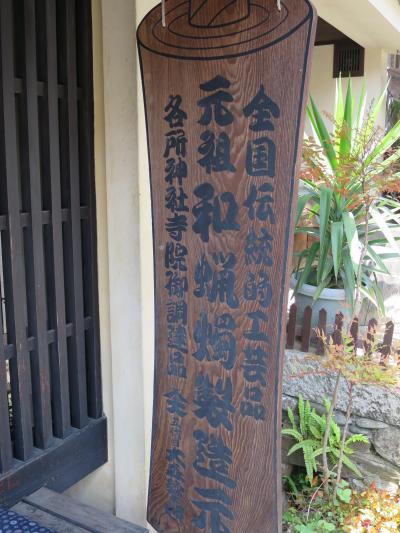 全国伝統的工芸品
元祖和蝋燭製造元
各所神社寺院御調進品